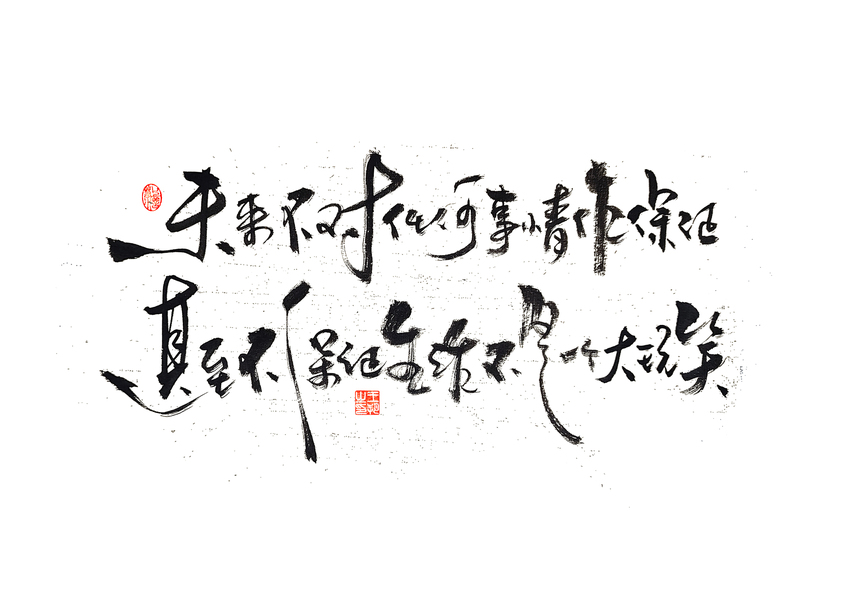 未来不对任何事情作保证
真至不保证全然不是一个大玩笑